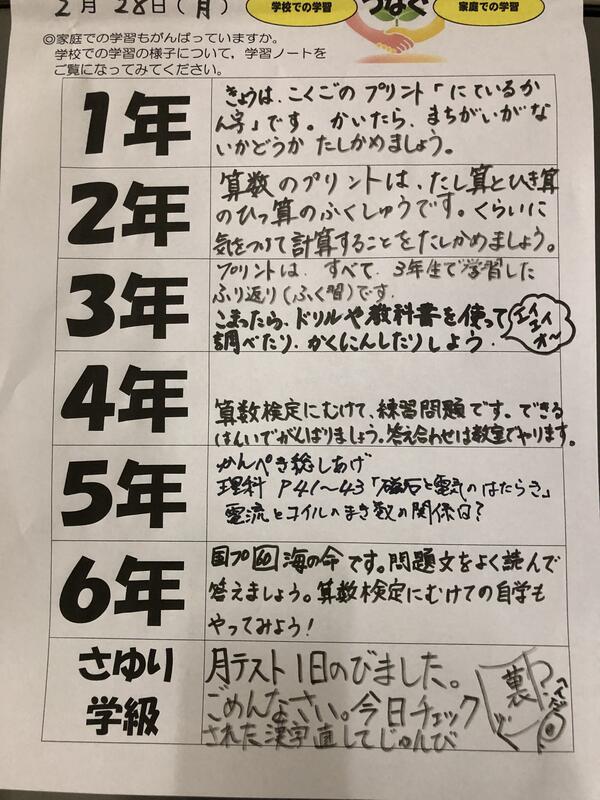 2月 28日(月)
学校での学習
つなぐ
家庭での学習
◎家庭での学習もがんばっていますか。
学校での学習の様子について,学習ノートを
ご覧になってみてください。
1年
きょうは、こくごのプリント「にているか
ん字」です。かいたら、まちがいがな
いかどうか たしかめましょう。
2年
算数のプリントは、たし算とひき算
のひっ算のふくしゅうです。くらいに
気をつけて計算することをたしかめましょう。
3年
プリントは、すべて、3年生で学習した
ふり返り(ふく習)です.
こまったら、ドリルや教科書を使って
調べたり、かくにんしたりしよう.
エイ
エイ
オ〜
4年
算数検定にむけて、練習問題です。できる
はんいでがんばりましょう。答え合わせは教室でやります。
5年
かんぺき総しあげ
理科 P41〜43「磁石と電気のはたらき」
電流とコイルのまき数の関係は?
6年
国プ60海の命です。問題文をよく読んで
答えましょう。算数検定にむけての自学も
やってみよう!
さゆり
学級
月テスト1日のびました。
ごめんなさい。今日チェック
された漢字直してじゅんび
裏